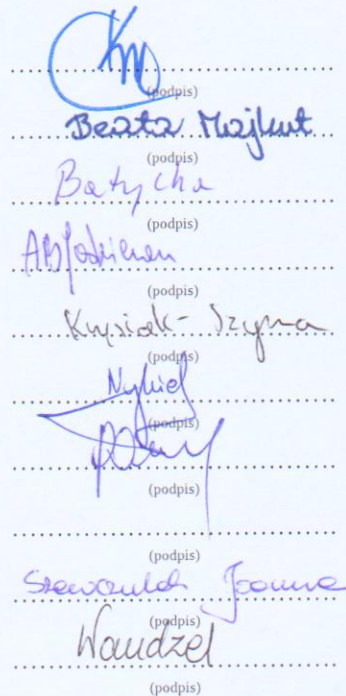 (podpis)
Beata Majkut
(podpis)
Batycha
(podpis)
(podpis)
Krysiak-Szyma
(podpis)
Nykiel
(podpis)
(podpis)
(podpis)
Joanna
(podpis)
Wandzel
(podpis)